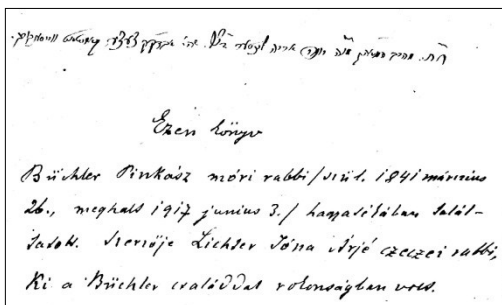 יונה אריה ליכטער
Ezen könyv
Büchler Pinkász móri rabbi /szül. 1841 március
26., meghalt 1917 junius 3./ talál-
tatott. Szerzője Lichter Jóna Árjé czeczei rabbi,
Ki a Büchler családdal rokonságban volt.